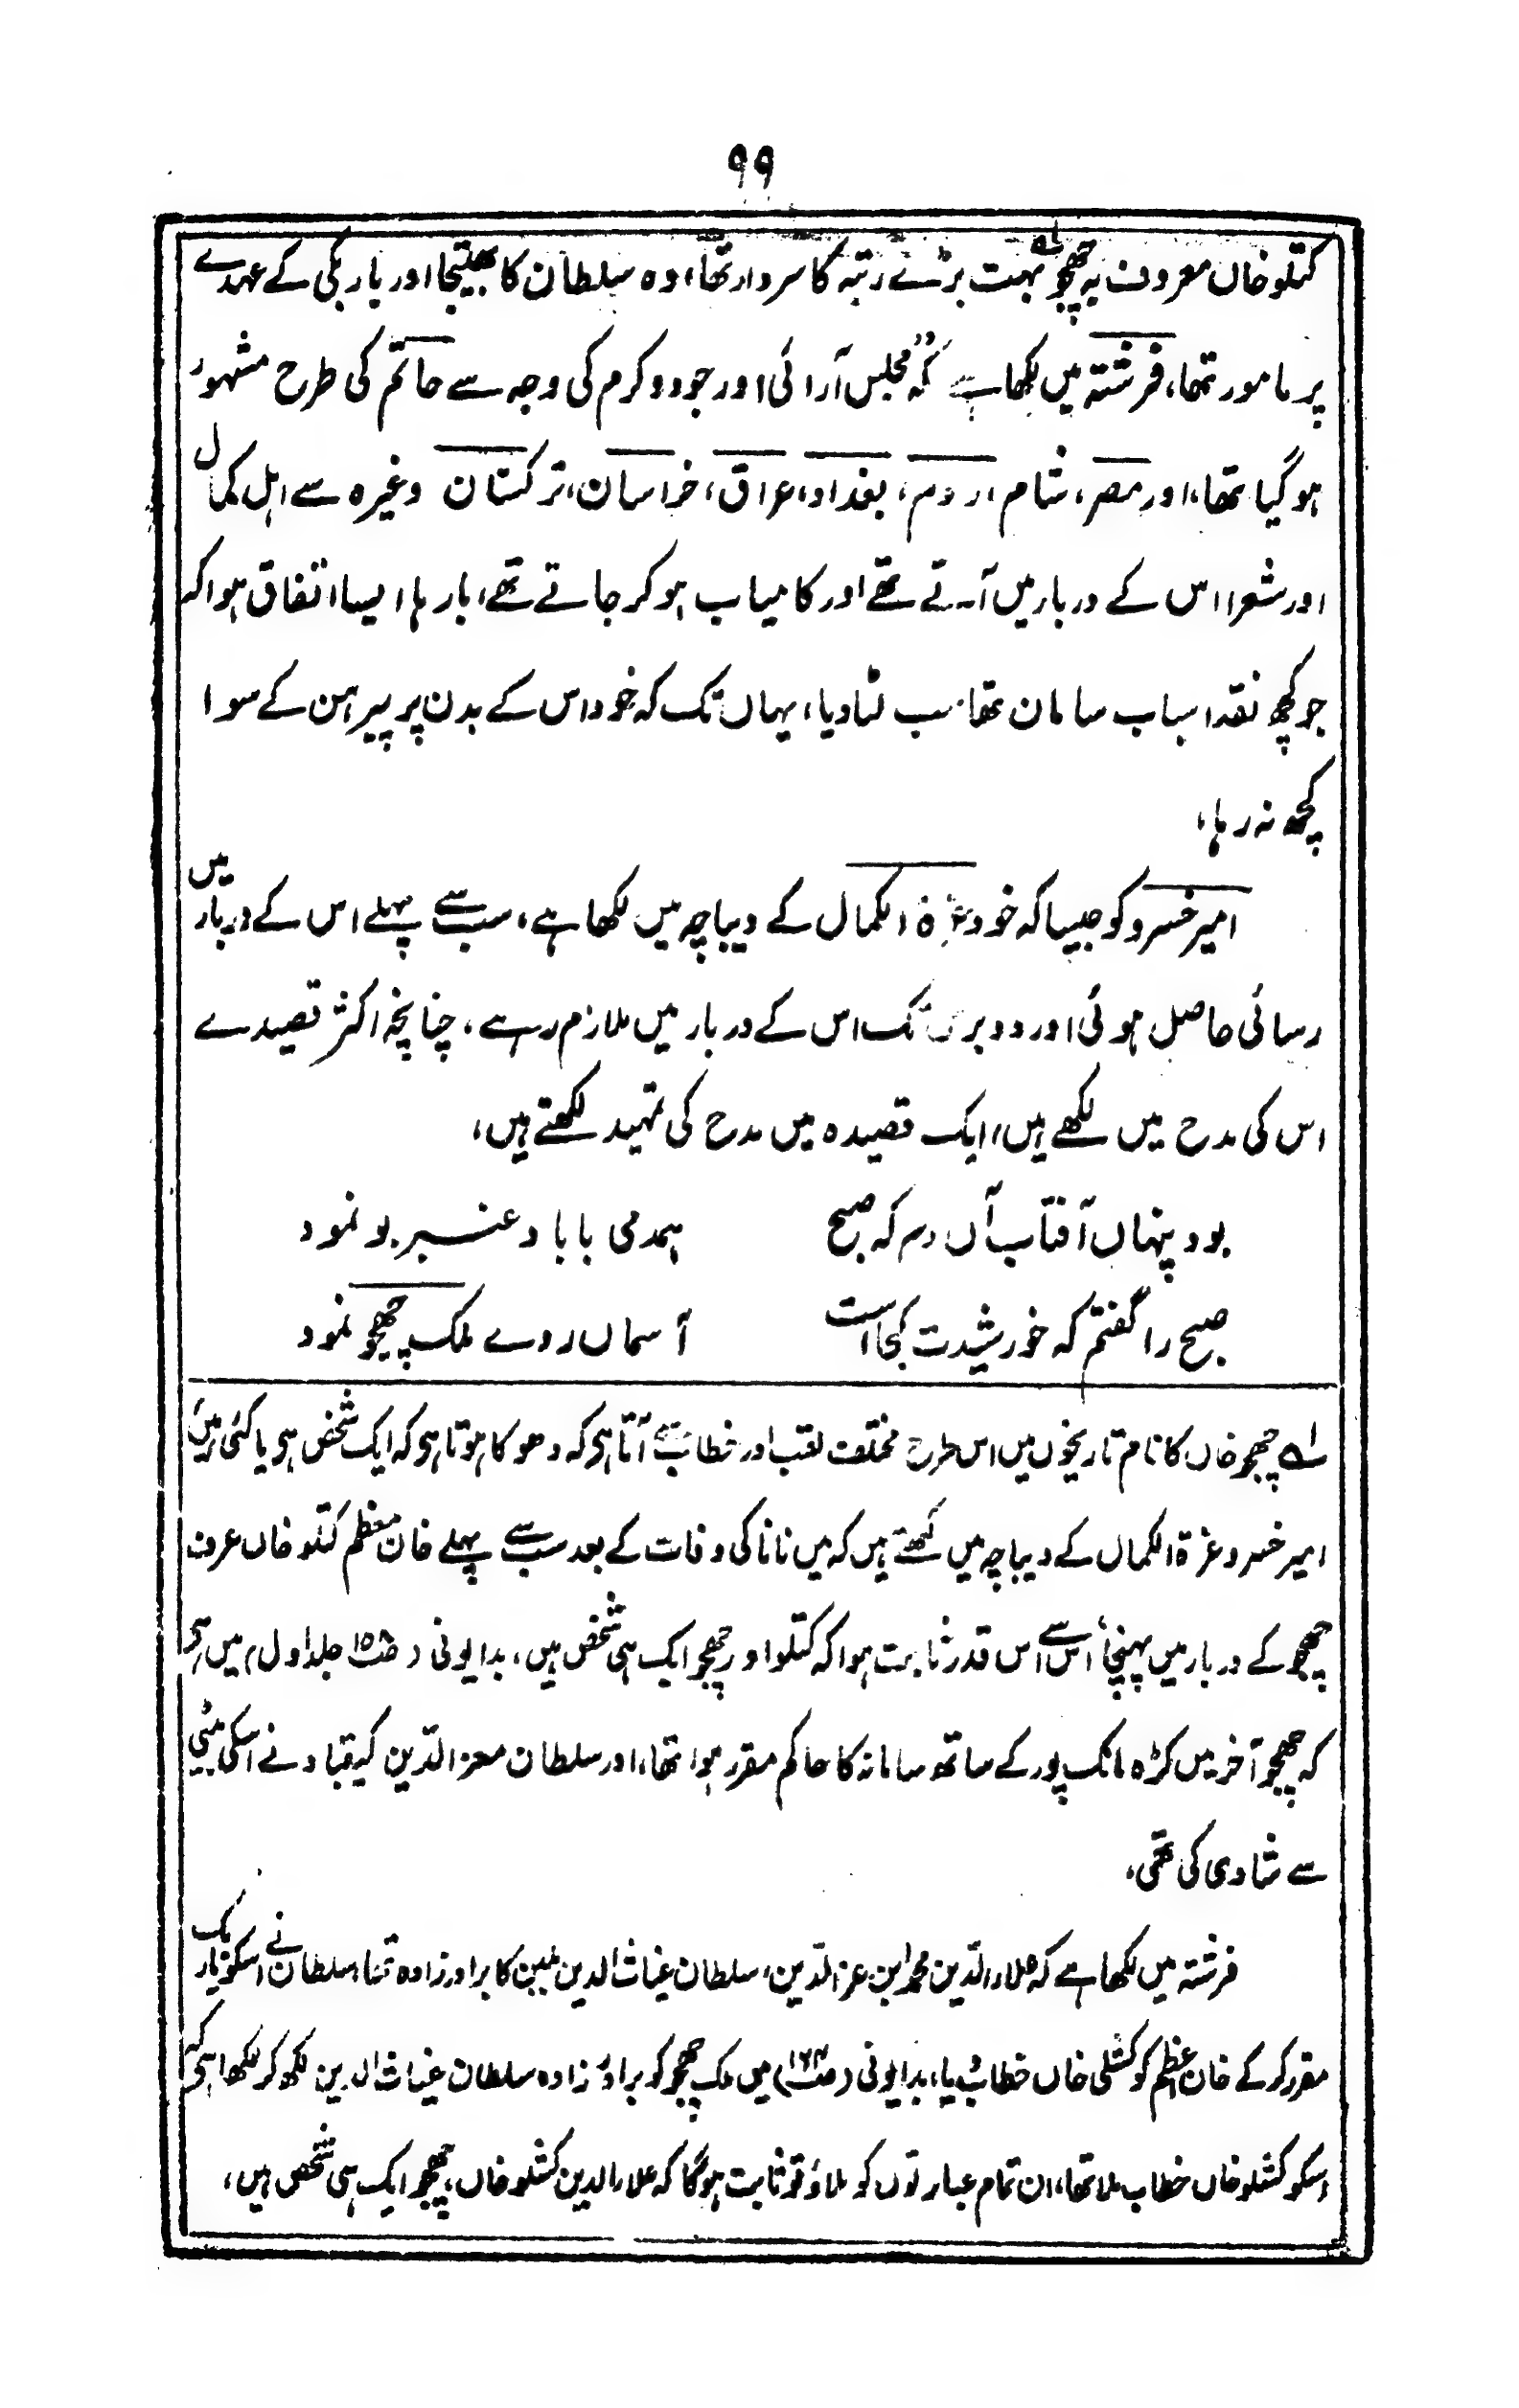 ۹۹
کتلو خاں معروف بہ چھجو لہ بہت بڑے رتبہ کا سردار تھا، وہ سلطان کا بھتیجا اور باربکی کے عہدے
پر مامور تھا، فرشتہ میں لکھا ہے کہ "مجلس آرائی اور جود و کرم کی وجہ سے حاتم کی طرح مشہور
ہو گیا تھا، اور مصر، شام، روم، بغداد، عراق، خراسان، ترکستان وغیرہ سے اہل کمال
اور شعرا اس کے دربار میں آتے تھے اور کامیاب ہو کر جاتے تھے، بارہا ایسا اتفاق ہوا کہ
جو کچھ نقد اسباب سامان تھا سب لٹا دیا، یہاں تک کہ خود اس کے بدن پر پیراہن کے سوا
کچھ نہ رہا،
امیر خسرو کو جیسا کہ خود غرۃ الکمال کے دیباچہ میں لکھا ہے، سب سے پہلے اس کے دربار میں
رسائی حاصل ہوئی اور دو برس تک اس کے دربار میں ملازم رہے، چنانچہ اکثر قصیدے
اس کی مدح میں لکھے ہیں، ایک قصیدہ میں مدح کی تمہید لکھتے ہیں،
بود پنہاں آفتاب آں دم کہ صبح ہمدمی با باد عنبر بو نمود
صبح را گفتم کہ خورشیدت کجا است آسماں روے ملک چھجو نمود
لہ چھجو خاں کا نام تاریخوں میں اس طرح مختلف لقب اور خطاب سے آتا ہی کہ دھوکا ہوتا ہی کہ ایک شخص ہی یا کئی ہیں
امیر خسرو غرۃ الکمال کے دیباچہ میں لکھتے ہیں کہ میں نانا کی وفات کے بعد سب سے پہلے خان معظم کتلو خاں عرف
چھجو کے دربار میں پہنچا، اس سے اس قدر ثابت ہوا کہ کتلو اور چھجو ایک ہی شخص ہیں، بدایونی (ص ۱۵۸ جلد اول) میں ہی
کہ چھجو آخر میں کڑہ مانک پور کے ساتھ سامانہ کا حاکم مقرر ہوا تھا، اور سلطان معز الدین کیقباد نے اسکی بیٹی
سے شادی کی تھی،
فرشتہ میں لکھا ہے کہ علاء الدین محمد ابن عز الدین، سلطان غیاث الدین بلبن کا برادر زادہ تھا، سلطان نے اسکو باربک
مقرر کر کے خان اعظم کو کشلی خاں خطاب دیا، بدایونی میں ملک چھجو کو برادر زادہ سلطان غیاث الدین لکھ کر لکھا ہی کہ
اسکو کشلو خاں خطاب ملا تھا، ان تمام عبارتوں کو ملاؤ تو ثابت ہو گا کہ علاء الدین کشلو خاں، چھجو ایک ہی شخص ہیں،